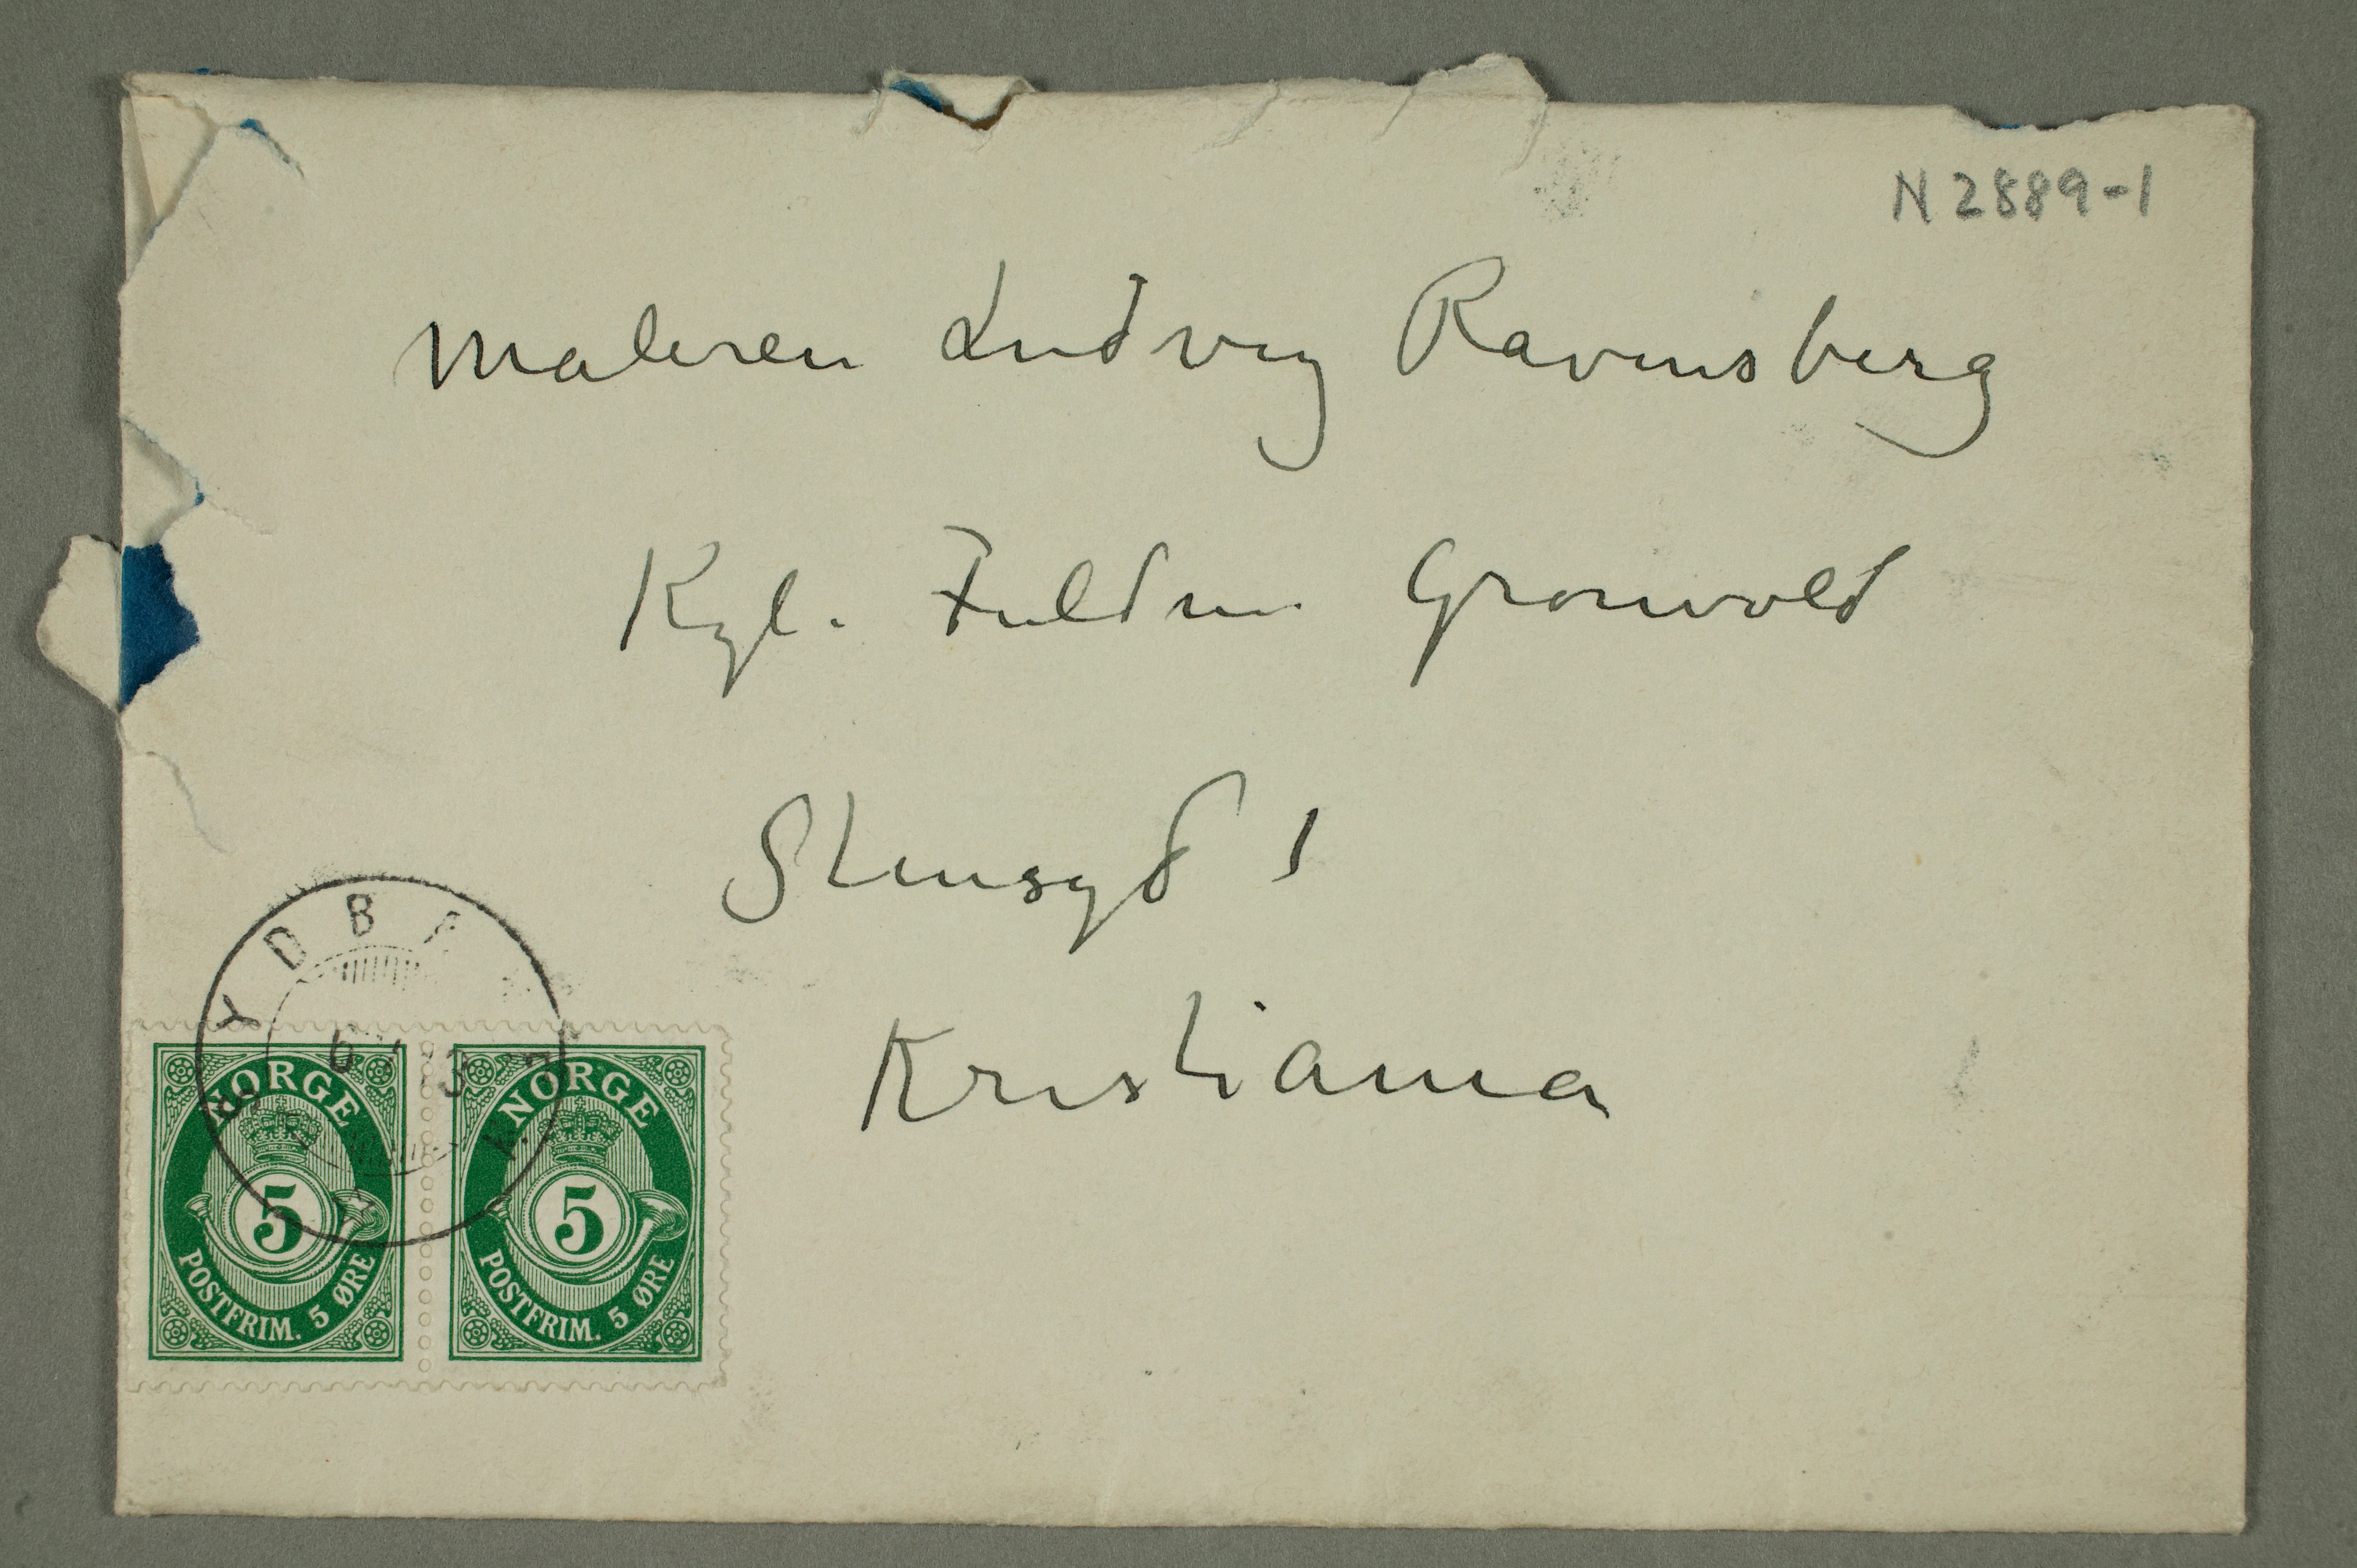 N 2889-1
Maleren Ludvig Ravensberg
Kgl. Fuldm. Grønvold
Stensgd 1
Kristiania
NORGE
5
POSTFRIM. 5 ØRE
NORGE
5
POSTFRIM. 5 ØRE